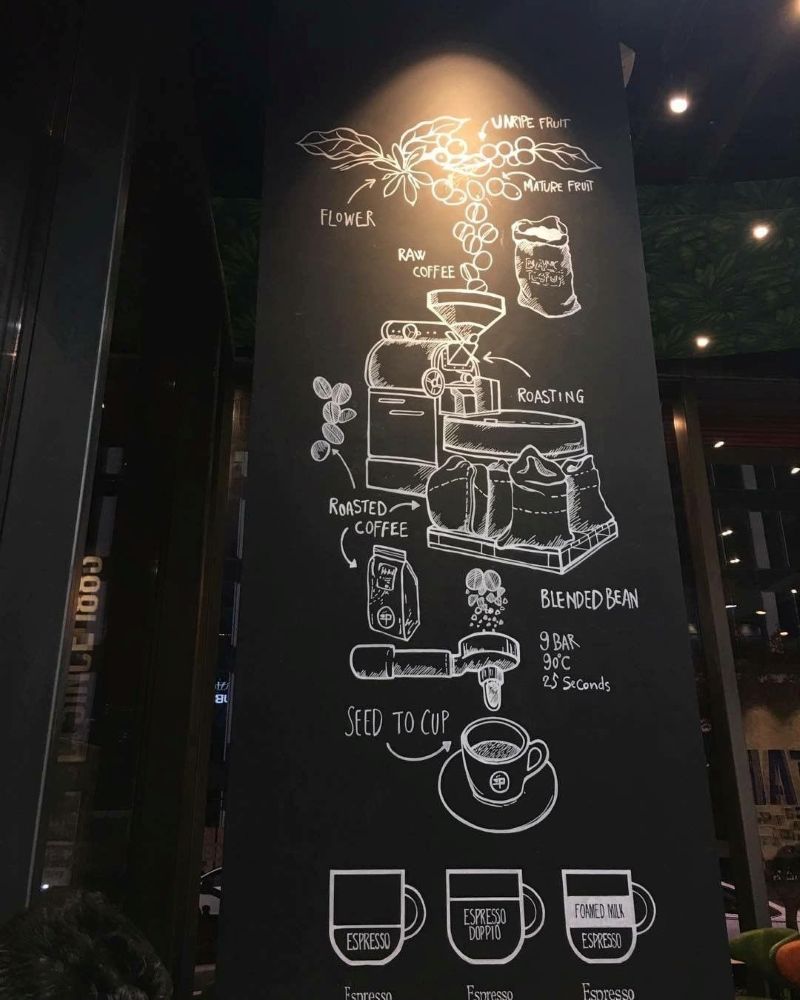 UNRIPE FRUIT
MATURE FRUIT
FLOWER
RAW
COFFEE
ROASTING
ROASTED
COFFEE
BLENDED BEAN
9 BAR
90°C
25 Seconds
SEED TO CUP
ESPRESSO
ESPRESSO
DOPPIO
FOAMED MILK
ESPRESSO
Espresso
Espresso
Espresso
SINCE 1895